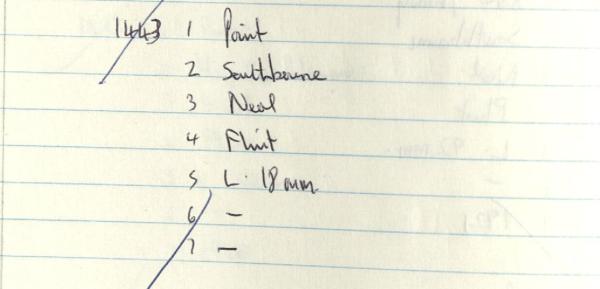 1443 1 Point
2 Southbourne
3 Neol
4 Flint
5 L. 18 mm.
6 –
7 –